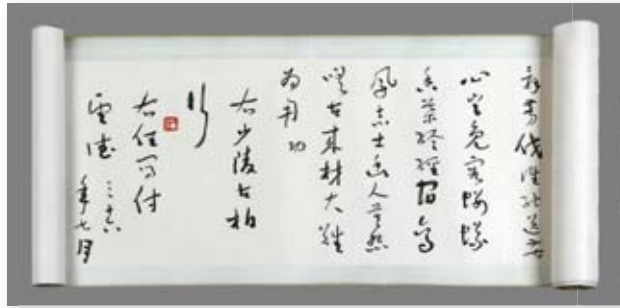 辭翦伐誰能送苦
心豈免容螻蟻
香葉終經宿鸞
鳳志士幽人莫怨
嗟古來材大難
為用
右少陵古柏
行
右任寫付
三十六
年七月